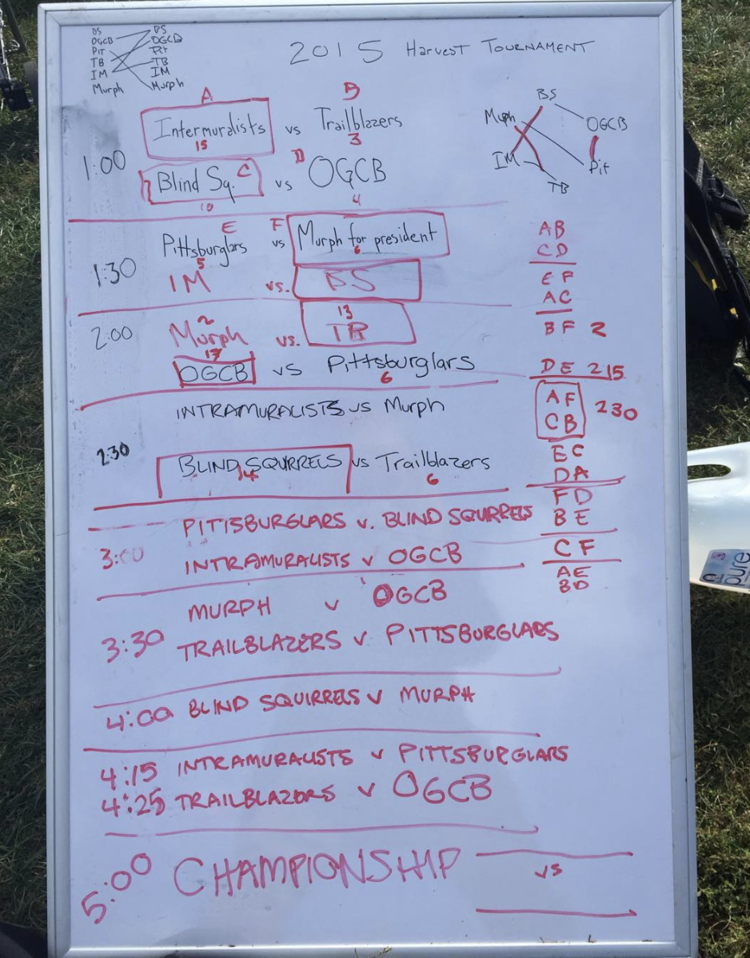 2015 HARVEST TOURNAMENT
BS BS
OGCB OGCB
Pit Pit
TB TB
IM IM
Murph Murph
A B
Intermuralists vs Trailblazers
15 3
1:00
Blind Sq. C vs D OGCB
10 4
BS
Murph OGCB
IM Pit
TB
E F
Pittsburglars vs Murph for president
5 6
1:30
IM vs. BS
2 13
2:00 Murph vs. TB
17
OGCB vs Pittsburglars
6
INTRAMURALISTS vs Murph
2:30
BLIND SQUIRRELS vs Trailblazers
14 6
PITTSBURGLARS v. BLIND SQUIRRELS
3:00
INTRAMURALISTS v OGCB
MURPH v OGCB
3:30
TRAILBLAZERS v PITTSBURGLARS
4:00 BLIND SQUIRRELS v MURPH
4:15 INTRAMURALISTS v PITTSBURGLARS
4:25 TRAILBLAZORS v OGCB
5:00 CHAMPIONSHIP vs
AB
CD
EF
AC
BF 2
DE 215
AF
CB 230
EC
DA
FD
BE
CF
AE
BD
pure